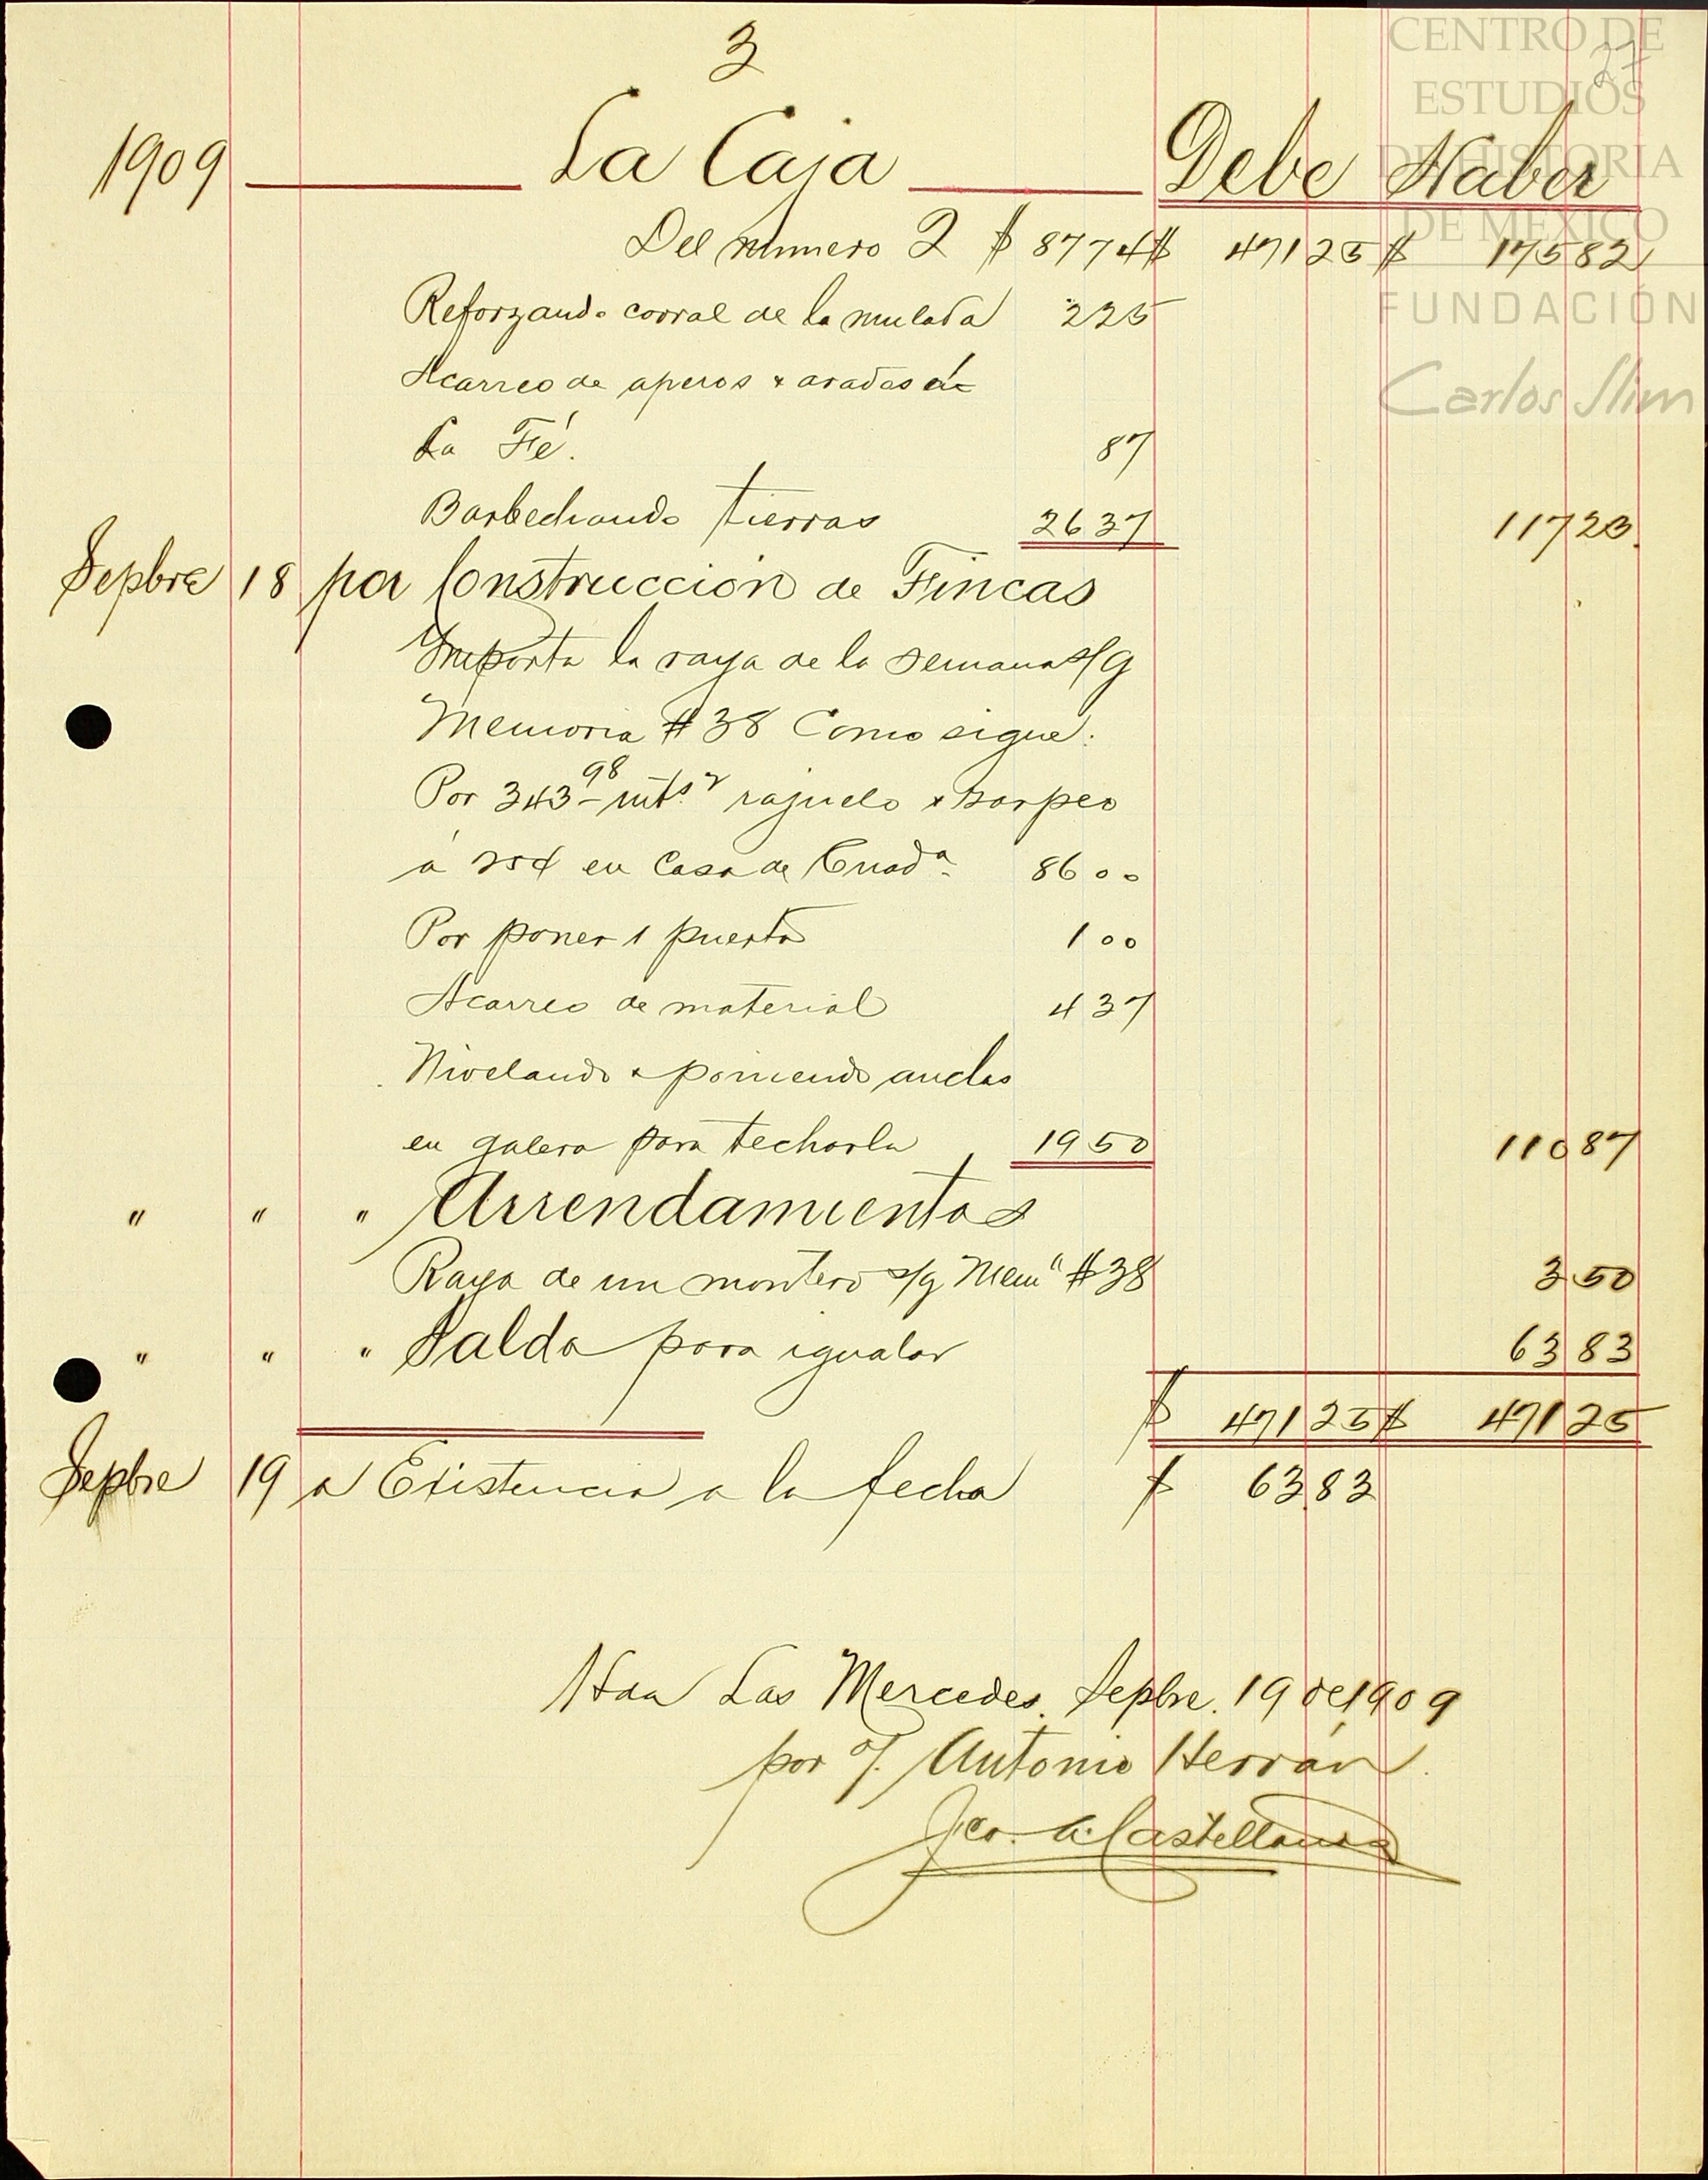 3
27
CENTRO DE
ESTUDIOS
DE HISTORIA
DE MÉXICO
FUNDACIÓN
Carlos Slim
1909 La Caja Debe Haber
Del número 2 $ 8774 $ 47125 $ 17582
Reforzando corral de la mulada 225
Acarreo de aperos y arados á
La Fé. 87
Barbechando tierras 2637 11723
Sepbre 18 por Construccion de Fincas
Importa la raya de la semana s/g
Memoria #38 Como sigue:
Por 343 98 mts.2 rajueleo y zarpeo
a 25¢ en Casa de Cuada. 8600
Por poner 1 puerta 100
Acarreo de material 437
Nivelando y poniendo anclas
en galera para techarla 1950 11087
" " " Arrendamientos
Raya de un montero s/g Mema #38 350
" " " Saldo para igualar 6383
$ 47125 $ 47125
Sepbre 19 a Existencia a la fecha $ 6383
Hda Las Mercedes. Sepbre. 19 de 1909
por J. Antonio Herrán.
Fco. G. Castellanos